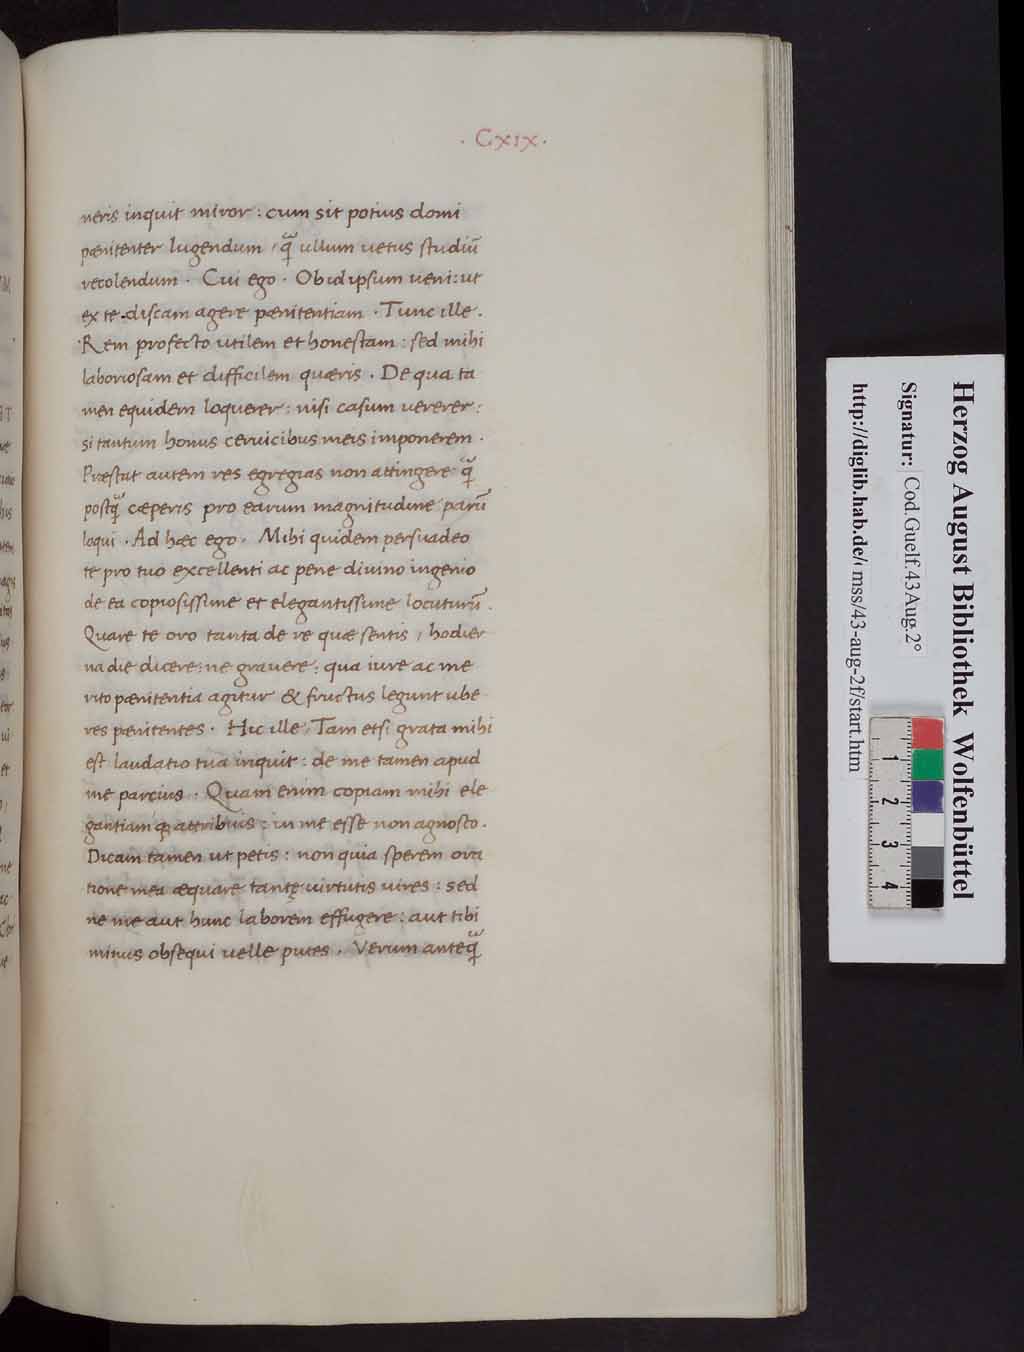 · Cxix ·
neris inquit miror : cum sit potius domi
pænitenter lugendum / q̃ ullum uetus studiũ
recolendum · Cui ego · Ob id ipsum ueni : ut
ex te discam agere pænitentiam · Tunc ille ·
Rem profecto utilem et honestam : sed mihi
laboriosam et difficilem quæris . De qua ta
men equidem loquerer : nisi casum uererer :
si tantum honus ceruicibus meis imponerem ·
Præstat autem res egregias non attingere q̃
postq̃ cæperis pro earum magnitudine parũ
loqui · Ad hæc ego · Mihi quidem persuadeo
te pro tuo excellenti ac pene diuino ingenio
de ea copiosissime et elegantissime locuturũ .
Quare te oro tanta de re quæ sentis / hodier
na die dicere : ne grauere : qua iure ac me
rito pænitentia agitur & fructus legunt ube
res pænitentes · Hic ille / Tam etsi grata mihi
est laudatio tua inquit : de me tamen apud
me parcius · Quam enim copiam mihi ele
gantiam q; attribuis : in me esse non agnosco .
Dicam tamen ut petis : non quia sperem ora
tione mea æquare tantę uirtutis uires : sed
ne me aut hunc laborem effugere : aut tibi
minus obsequi uelle putes . Verum anteq̃
Herzog August Bibliothek Wolfenbüttel
Signatur: Cod.Guelf.43 Aug.2°
http://diglib.hab.de/ mss/43-aug-2f/start.htm
1 2 3 4